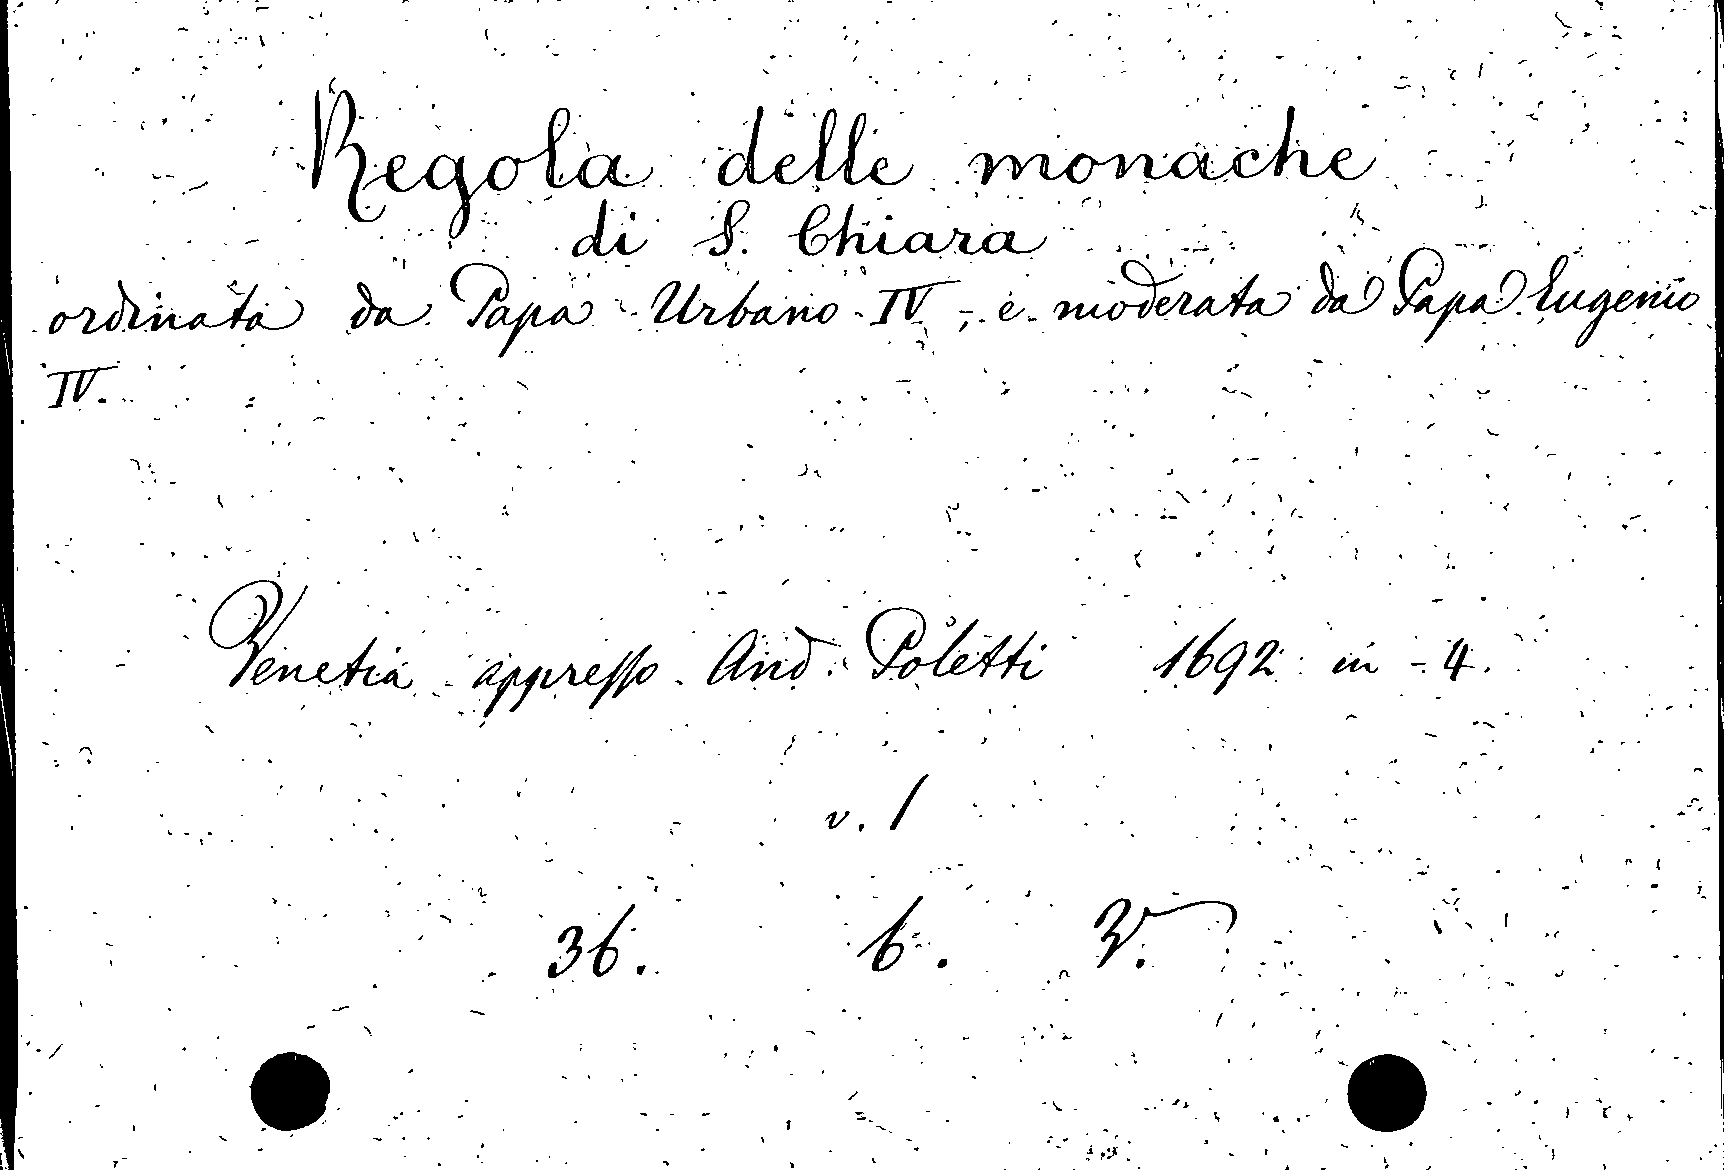 Regola delle monache
di S. Chiara
ordinata da Papa Urbano IV, e moderata da Papa Eugenio
IV.
Venetia appresso And. Poletti 1692 in-4.
v. 1
36. 6. 3.